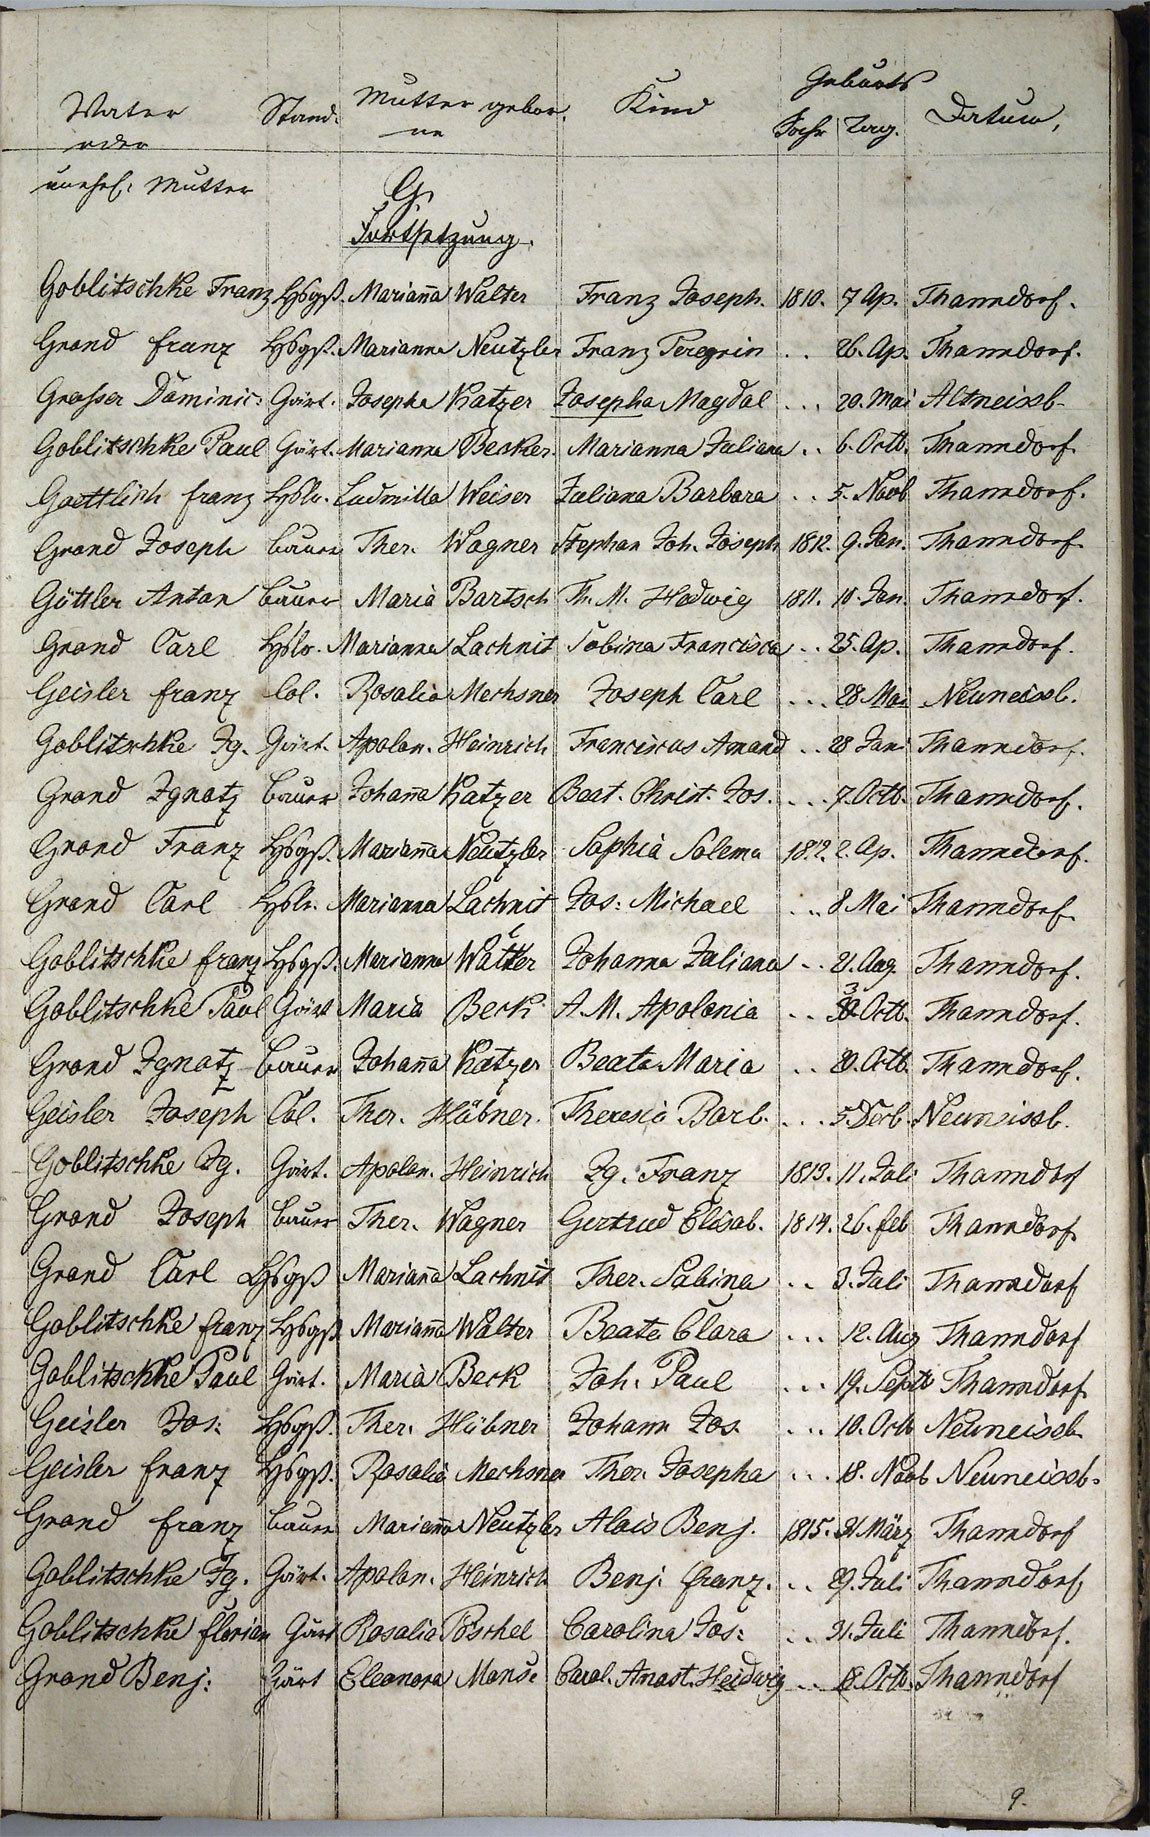 Vater Stand. Mutter gebor. Kind Geburts Datum,
oder ne Jahr Tag.
unehel: Mutter
G.
Fortsetzung.
Goblitschke Franz Hsgß. Mariana Walter Franz Joseph 1810. 7 Ap. Thanndorf.
Grond franz Hsgß. Marianna Neutzler Franz Peregrin .. 26. Ap. Thanndorf.
Grosser Dominic: Gärt. Josepha Katzer Josepha Magdal ... 20. Mai Altneissb.
Goblitschke Paul Gärt. Marianna Becker Marianna Juliana .. 6. Octb. Thanndorf.
Goettlich franz Hslr. Ludmilla Weiser Juliana Barbara .. 5. Novb Thanndorf.
Grond Joseph bauer Ther. Wagner Stephan Joh. Joseph 1812. 9. Jan. Thanndorf.
Göttler Anton bauer Maria Bartsch Th. M. Hedwig 1811. 10. Jan. Thanndorf.
Grond Carl Hslr. Marianna Lachnit Sabina Francisca .. 25. Ap. Thanndorf.
Geisler franz Col. Rosalia Mechsner Joseph Carl ... 28 Mai Neuneissb.
Goblitschke Ig. Gärt. Apolon. Heinrich Franciscus Amand .. 28 Juni Thanndorf.
Grond Ignatz bauer Johana Katzer Beat. Christ. Jos. ... 7. Octb. Thanndorf.
Grond Franz Hsgß. Mariana Neutzler Sophia Solema 1812. 2. Ap. Thanndorf.
Grond Carl Hslr. Marianna Lachnit Jos: Michael ... 8 Mai Thanndorf.
Goblitschke franz Hsgß. Marianna Walter Johanna Juliana .. 21. Aug. Thanndorf.
Goblitschke Paul Gärt Maria Beck A. M. Apolonia .. Octb. Thanndorf.
Grond Ignatz bauer Johana Katzer Beate Maria .. 20. Octb. Thanndorf.
Geisler Joseph Col. Ther. Hübner. Theresia Barb. ... 5. Decb. Neuneissb.
Goblitschke Ig. Gärt. Apolon. Heinrich Ig. Franz 1813. 11. Juli Thanndorf
Grond Joseph bauer Ther. Wagner Gertrud Elisab. 1814. 26. feb Thanndorf.
Grond Carl Hsgß Mariana Lachnit Ther. Sabina .. 3. Juli Thanndorf
Goblitschke franz Hsgß Mariana Walter Beate Clara ... 12. Aug Thanndorf
Goblitschke Paul Gärt. Maria Beck Joh. Paul ... 19. Septb Thanndorf.
Geisler Jos: Hsgß. Ther. Hübner Johann Jos. ... 10. Octb Neuneissb.
Geisler franz Hsgß. Rosalia Mechsner Ther. Josepha ... 18. Novb Neuneissb.
Grond franz bauer Mariana Neutzler Alois Benj. 1815. 31 März Thanndorf
Goblitschke Ig. Gärt. Apolon. Heinrich Benj. franz. .. 29. Juli Thanndorf
Goblitschke florian Gärt Rosalia Pöschel Carolina Jos: .. 31. Juli Thanndorf.
Grond Benj: Gärt Eleonora Manse Carol. Anast. Heidwig .. 18. Octb. Thanndorf
9.